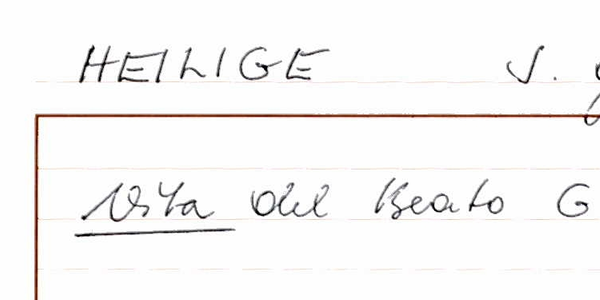 HEILIGE
Vita del Beato G